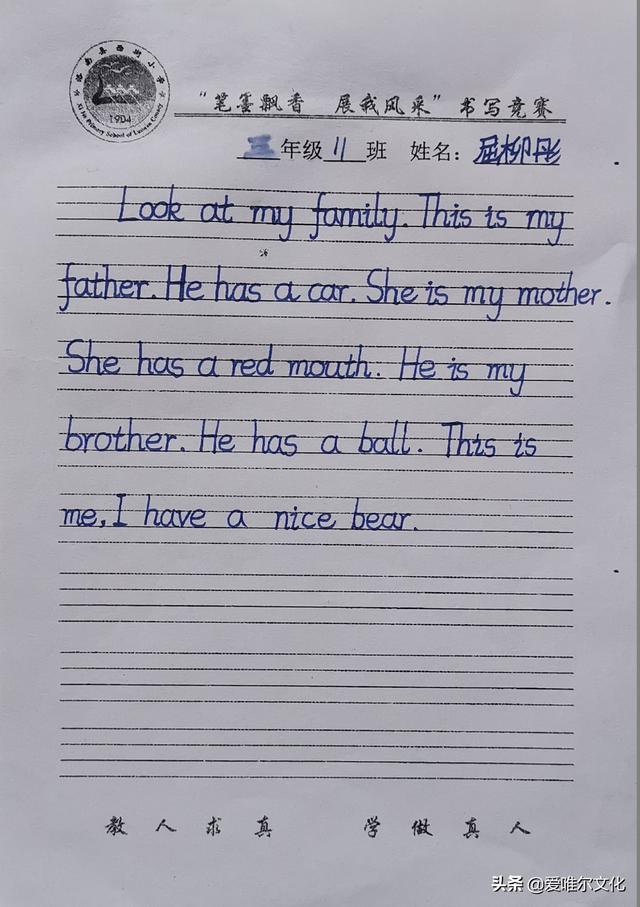 1904
"笔墨飘香 展我风采"书写竞赛
三年级11班 姓名：屈柳彤
Look at my family. This is my
father. He has a car. She is my mother.
She has a red mouth. He is my
brother. He has a ball. This is
me, I have a nice bear.
教人求真 学做真人
头条 @爱唯尔文化